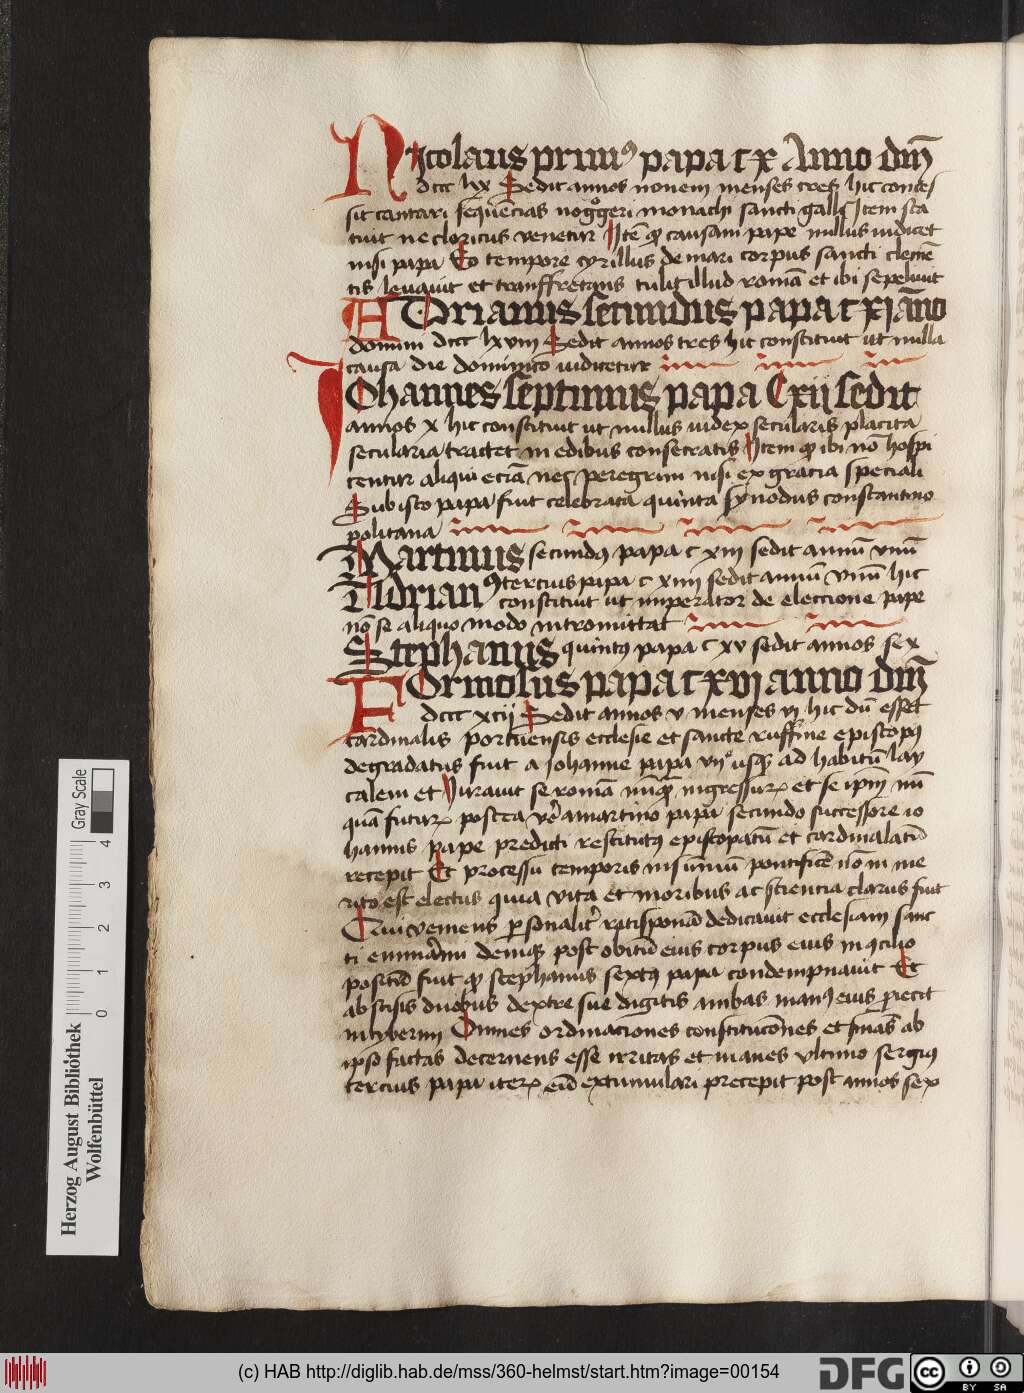 Nicolaus primꝰ papa c x Anno dm̄
dccc lxx Sedit annos nonem menses tres hic conces
sit cantari sequencias nogͦgeri monachi sancti galli Item sta
tuit ne clericus venetur Itē qͥ causam pape nullus iudicet
nisi papa Eo tempore cyrillus de mari corpus sancti clemē
tis leuauit et transfretans tulit illud romā et ibi sepeliuit
ADrianus secundus papa c xj āno
domini dccc lxviii Sedit annos tres hic constituit ut nulla
causa die dominico iudicetur
IOhannes septimus papa Cxij sedit
annos x hic constituit ut nullus iudex secularis placita
secularia tractet in edibus consecratis Item qͥ ibi nō hospi
centur aliqui eciā nec peregrini nisi ex gracia speciali
Sub isto papa fuit celebrata quinta synodus constantino
politana
Martinus secundꝰ papa c xiii sedit annū vnū
Adrianꝰ tercius papa c xiiii sedit annū vnū hic
constituit ut imperator de eleccione pape
nō se aliquo modo intromittat
Stephanus quintꝰ papa c xv sedit annos sex
FOrmosus papa c xvj anno dm̄
dccc xcij Sedit annos v menses vj hic dū esset
cardinalis portuensis ecclesie et sancte ruffine episcopꝰ
degradatus fuit a Johanne papa vijͦ usqꝫ ad habitū lay
calem et Iurauit se romā nūqꝫ ingressurꝝ et se ipm̄ nū
quā futurꝝ postea vͦ a martino papa secundo successore io
hannis pape predicti restitutꝰ episcopatū et cardinalatū
recepit Et processu temporis in sūmū pontificē nō in me
rito est electus quia vita et moribus ac scientia clarus fuit
Qui veniens ꝑsonalitͬ ratisponā dedicauit ecclesiam sanc
ti emmͣmi deniqꝫ post obitū eius corpus eius in ꝯcilio
positū fuit qͥ stephanus sextꝰ papa condempnauit Et
abscisis duobus dextre sue digitis ambas manꝰ eius ꝓiecit
in tyberim Omnes ordinaciones constitucōnes et sn̄ias ab
ipso factas decernens esse irritas et inanes vltimo sergiꝰ
tercius papa iterꝝ eū extumulari precepit post annos sex
Herzog August Bibliothek
Wolfenbüttel
Gray Scale
0 1 2 3 4
(c) HAB http://diglib.hab.de/mss/360-helmst/start.htm?image=00154
DFG
cc BY SA